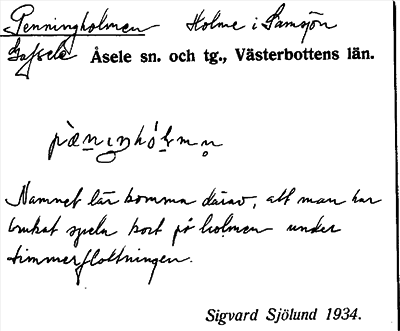 Penningholmen Holme i Samsjön
Gafsele Åsele sn. och tg., Västerbottens län.
Namnet lär komma därav, att man har
brukat spela kort på holmen under
timmerflottningen.
Sigvard Sjölund 1934.